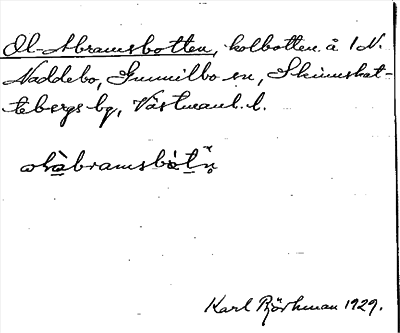 Ol-Abramsbotten, kolbotten å 1 N.
Naddebo, Gunnilbo sn, Skinnskat-
tebergs bg, Västmanl. l.
Karl Björkman 1929.